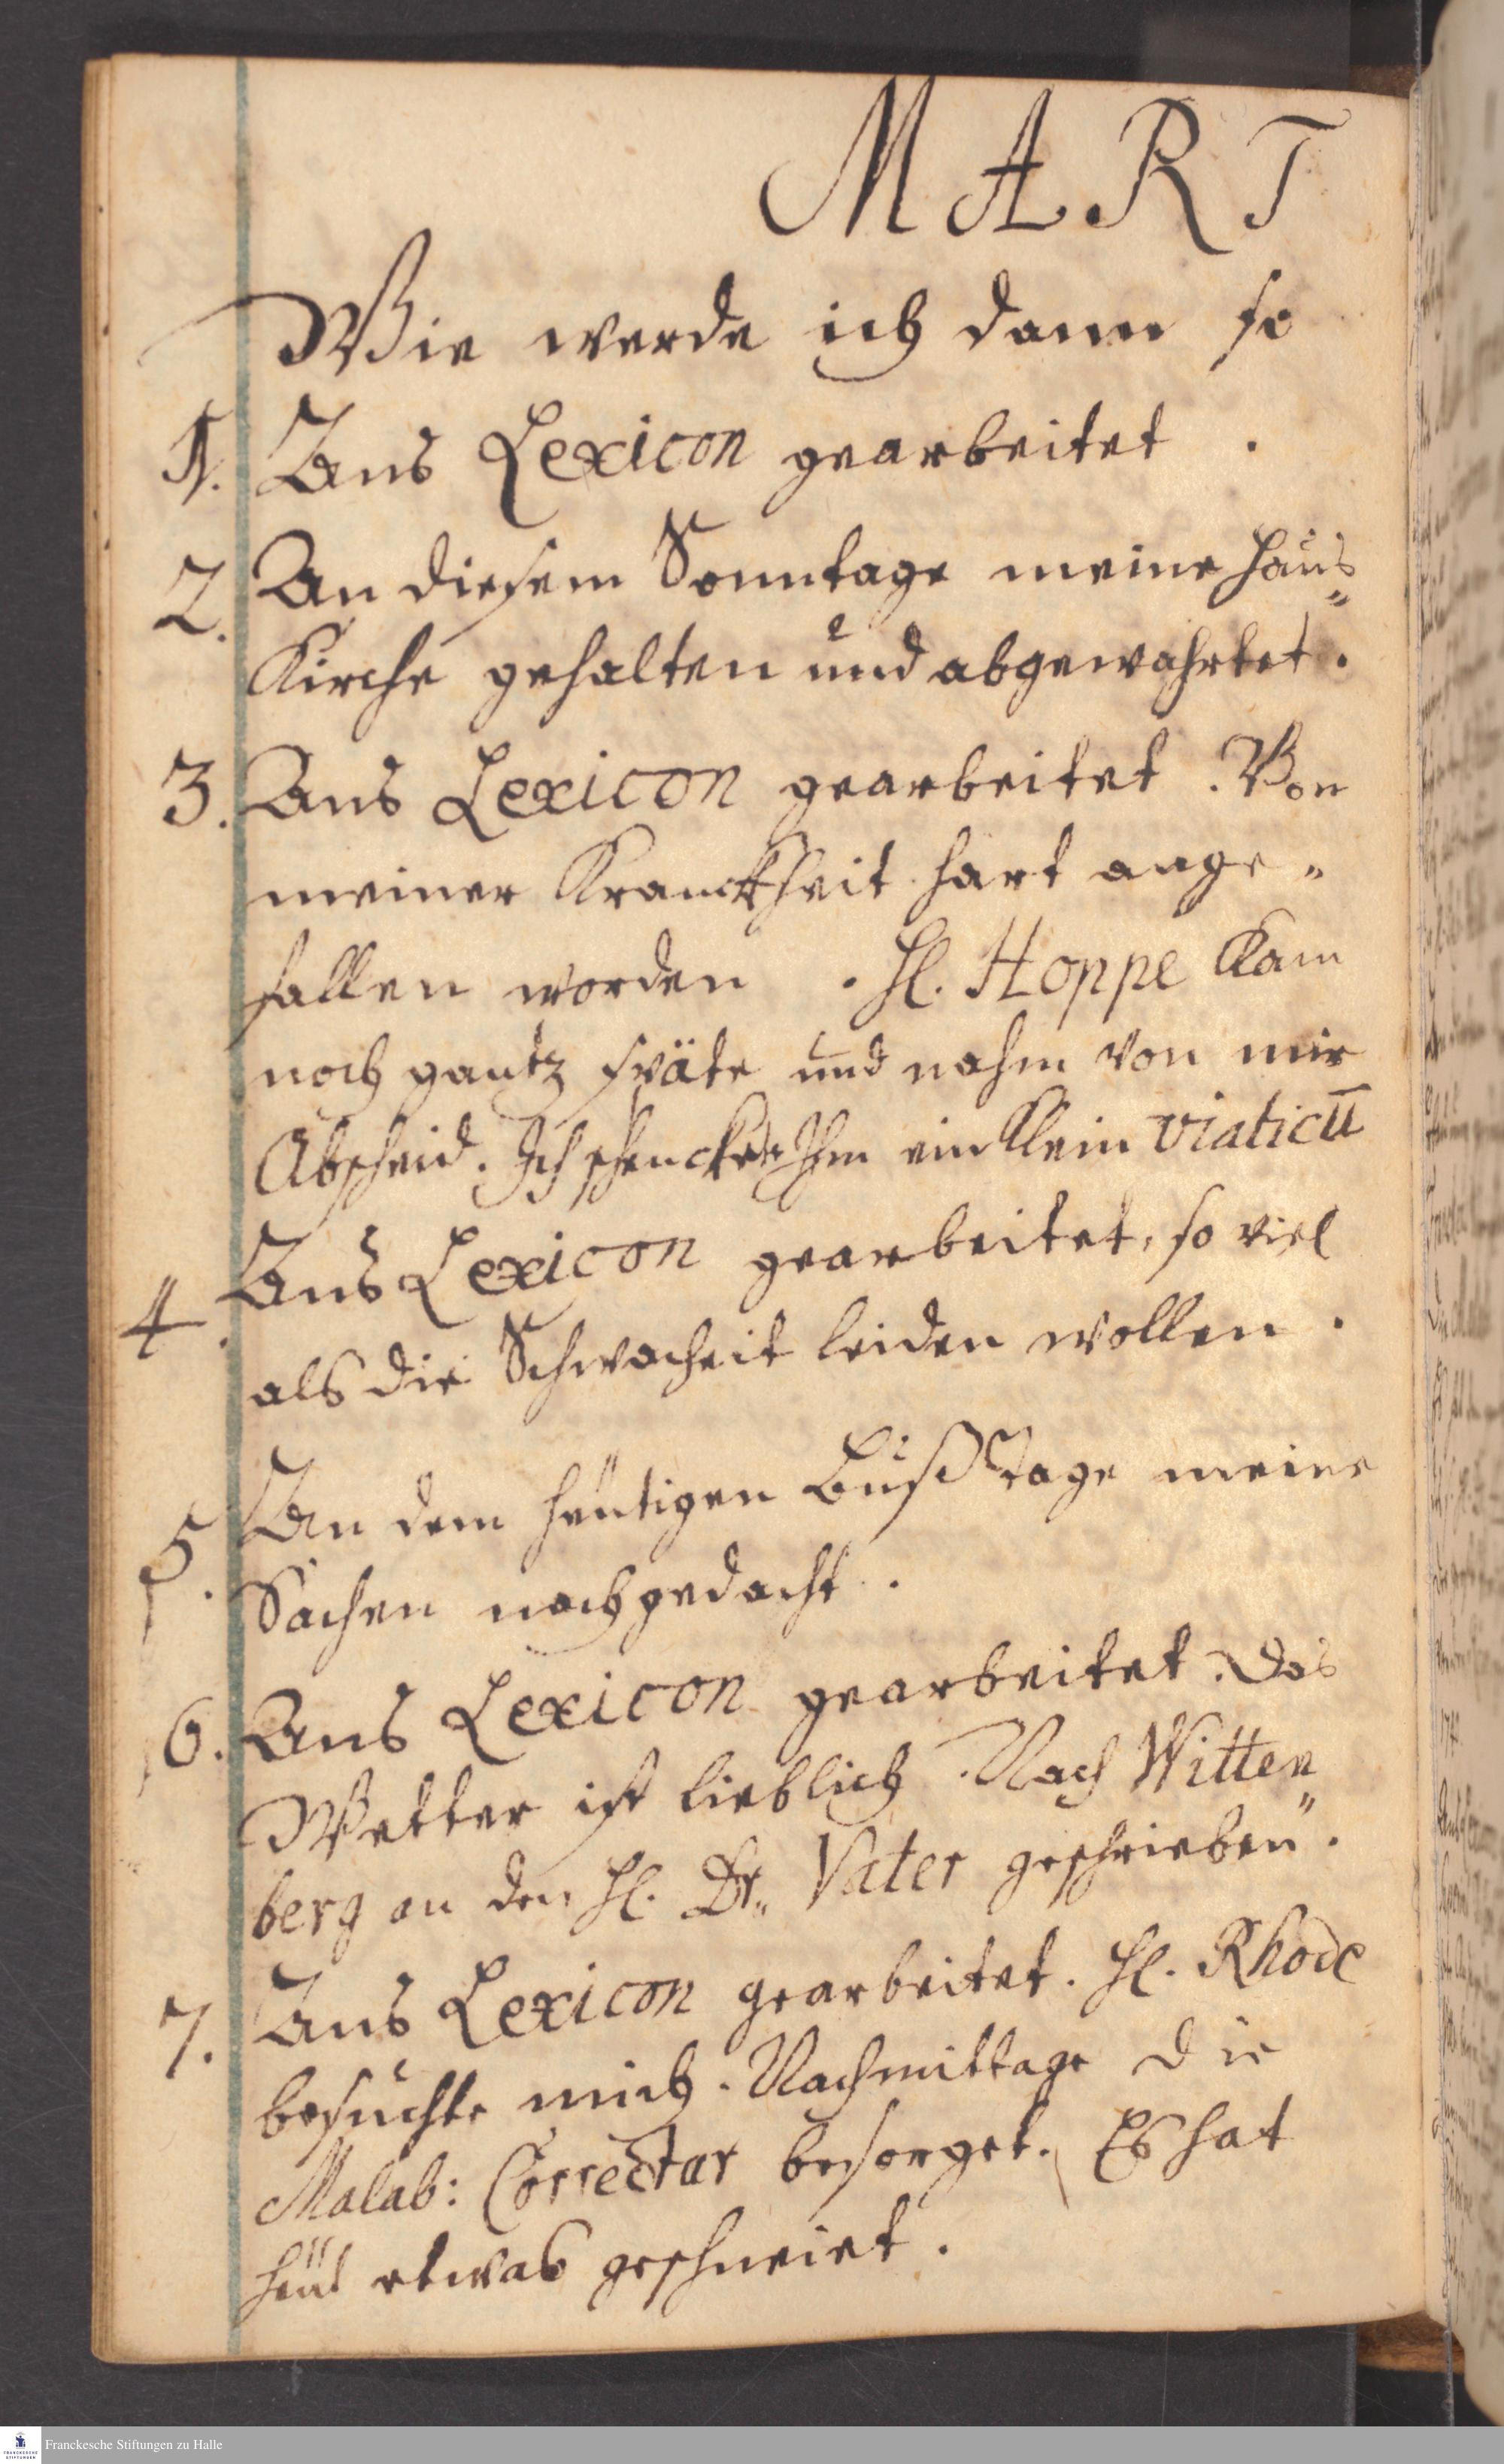 MART
Wie werde ich dann so
1. Ans Lexicon gearbeitet.
2. An diesem Sonntage meine Haus-
Kirche gehalten und abgewahrtet.
3. Ans Lexicon gearbeitet. Von
meiner Kranckheit hart ange-
fallen worden. H. Hoppe kam
noch gantz späte und nahm von mir
Abscheid. Ich schenckte Ihm ein klein viaticū
4. Ans Lexicon gearbeitet, so viel
als die Schwacheit leiden wollen.
5. An dem heutigen Bußtage meine
Sachen nachgedacht.
6. Ans Lexicon gearbeitet. Das
Wetter ist lieblich. Nach Witten-
berg an den H. Dr. Vater geschrieben.
7. Ans Lexicon gearbeitet. H. Rhode
besuchte mich. Nachmittage die
Malab: Correctur besorget. Es hat
heut etwas geschneiet.
Franckesche Stiftungen zu Halle
FRANCKESCHE
STIFTUNGEN